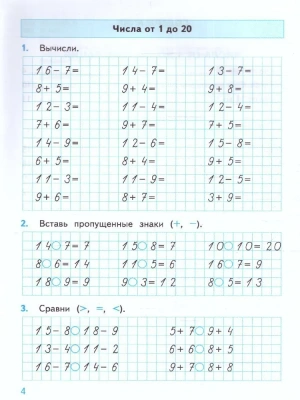 Числа от 1 до 20
1. Вычисли.
16-7= 14-7= 13-7=
8+5= 9+4= 9+8=
12-3= 12-6= 12-4=
7+6= 9+7= 8+6=
14-9= 12-6= 15-8=
6+5= 8+4= 9+9=
11-3= 11-9= 12-5=
9+6= 8+7= 3+9=
2. Вставь пропущенные знаки (+, -).
14○7=7 15○8=7 10○10=20
8○6=14 11○5=6 16○7=9
18○9=9 9○3=12 8○5=13
3. Сравни (>, =, <).
15-8○18-9 5+7○9+4
13-4○11-2 6+6○8+5
16-7○14-6 9+7○8+8
4